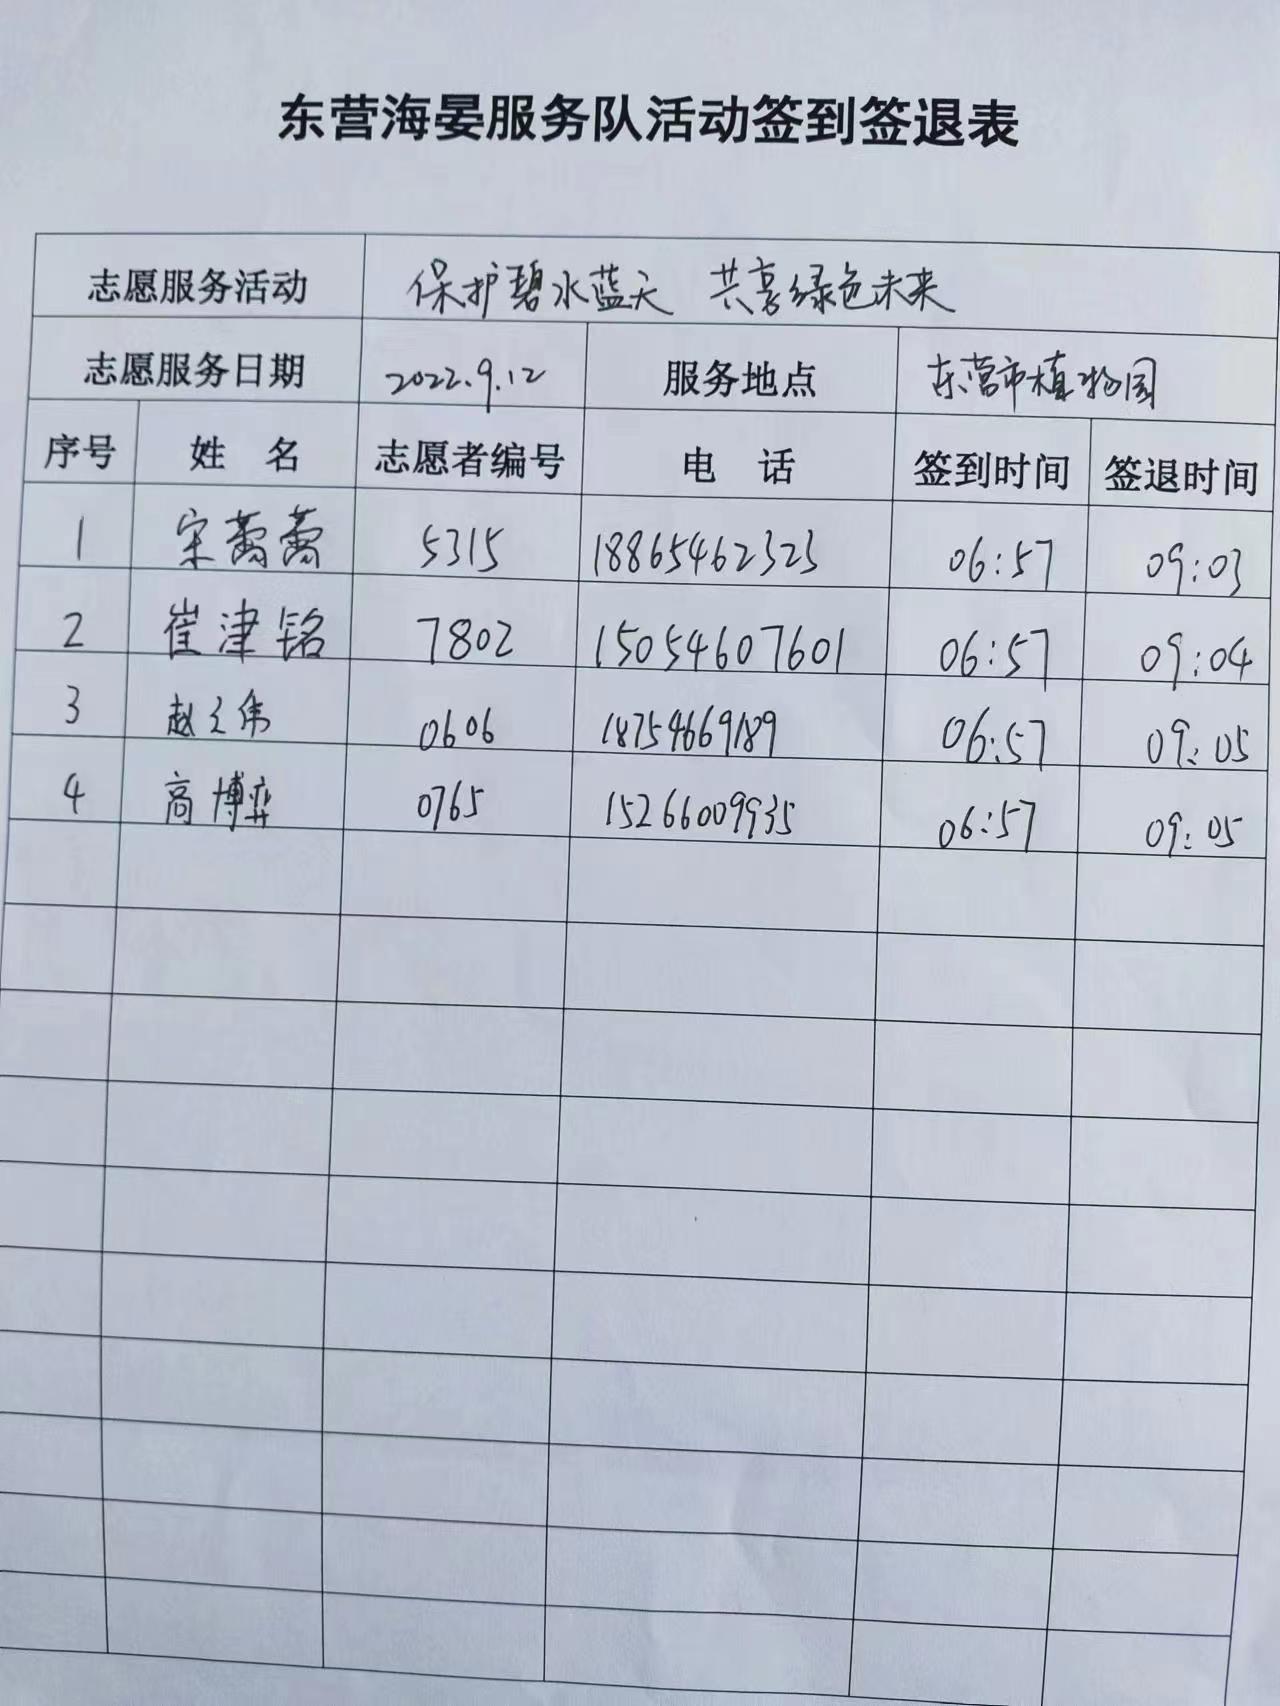 东营海晏服务队活动签到签退表
志愿服务活动 保护碧水蓝天 共享绿色未来
志愿服务日期 2022.9.12 服务地点 东营市植物园
序号 姓 名 志愿者编号 电 话 签到时间 签退时间
1 宋蕾蕾 5315 18865462323 06:57 09:03
2 崔津铭 7802 15054607601 06:57 09:04
3 赵之伟 0606 18754669189 06:57 09:05
4 高博弈 0765 15266009935 06:57 09:05